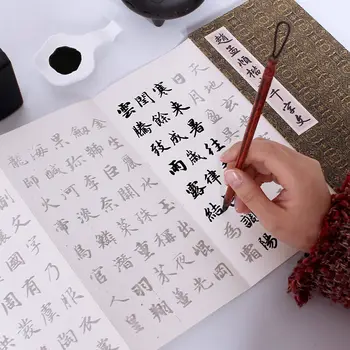 趙孟頫楷
千字文
天地
日月
寒來暑往
閏餘成歲律呂調陽
雲騰致雨露結為霜
金生麗水玉出崑岡
劍號巨闕珠稱夜光
果珍李柰菜重芥薑
海鹹河淡鱗潛羽翔
龍師火帝鳥官人皇
制文字乃服衣
國有虞陶